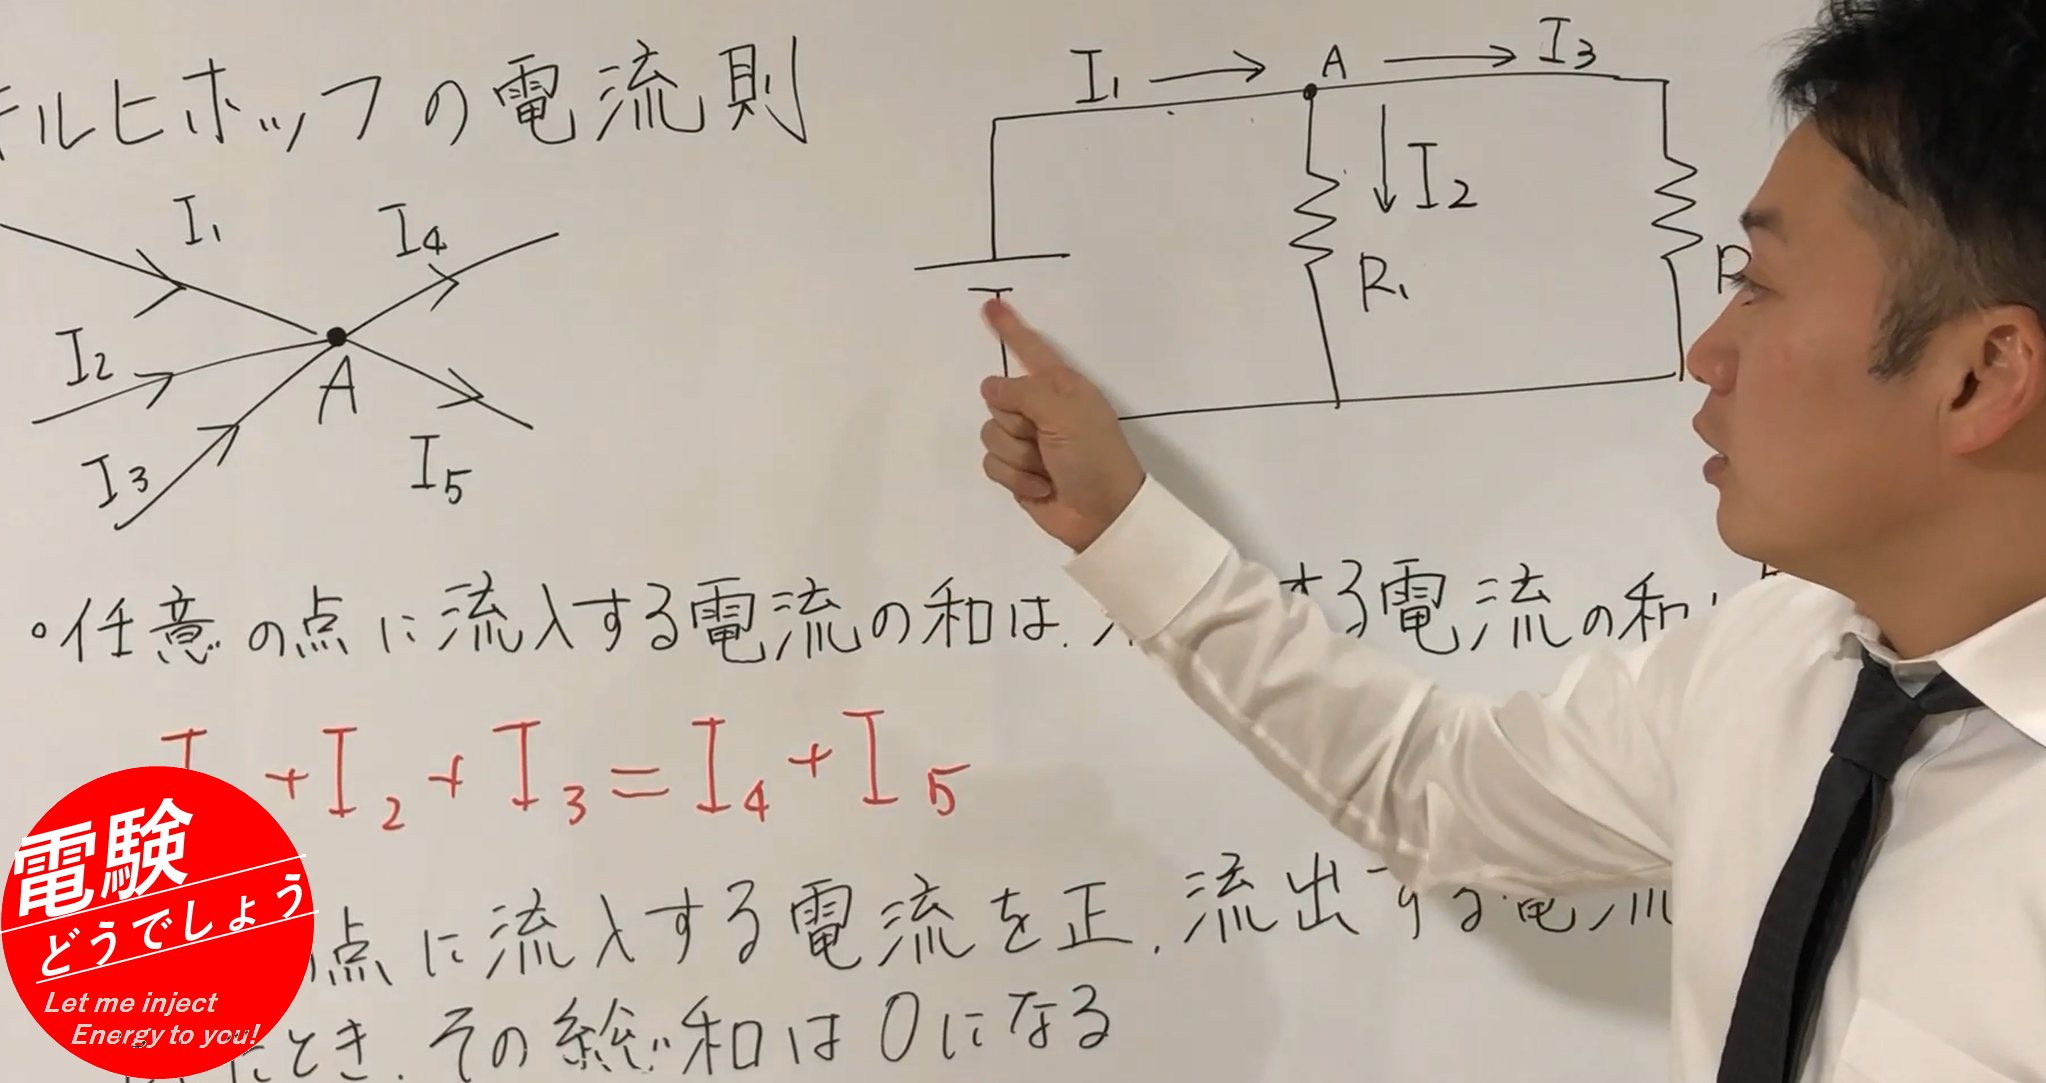 キルヒホッフの電流則
I₁
I₄
I₂
A
I₃
I₅
I₁ A I₃
I₂
R₁
R
・任意の点に流入する電流の和は、する電流の和
I+I₂+I₃=I₄+I₅
点に流入する電流を正、流出する電流
とき、その総和は0になる
電験
どうでしょう
Let me inject
Energy to you!